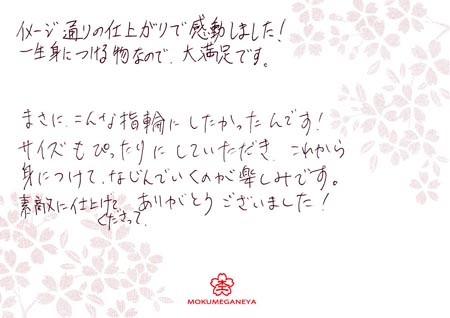 イメージ通りの仕上がりで感動しました!
一生身につける物なので、大満足です。
まさに、こんな指輪にしたかったんです!
サイズもぴったりにしていただき、これから
身につけて、なじんでいくのが楽しみです。
素敵に仕上げてくださって、ありがとうございました!
MOKUMEGANEYA